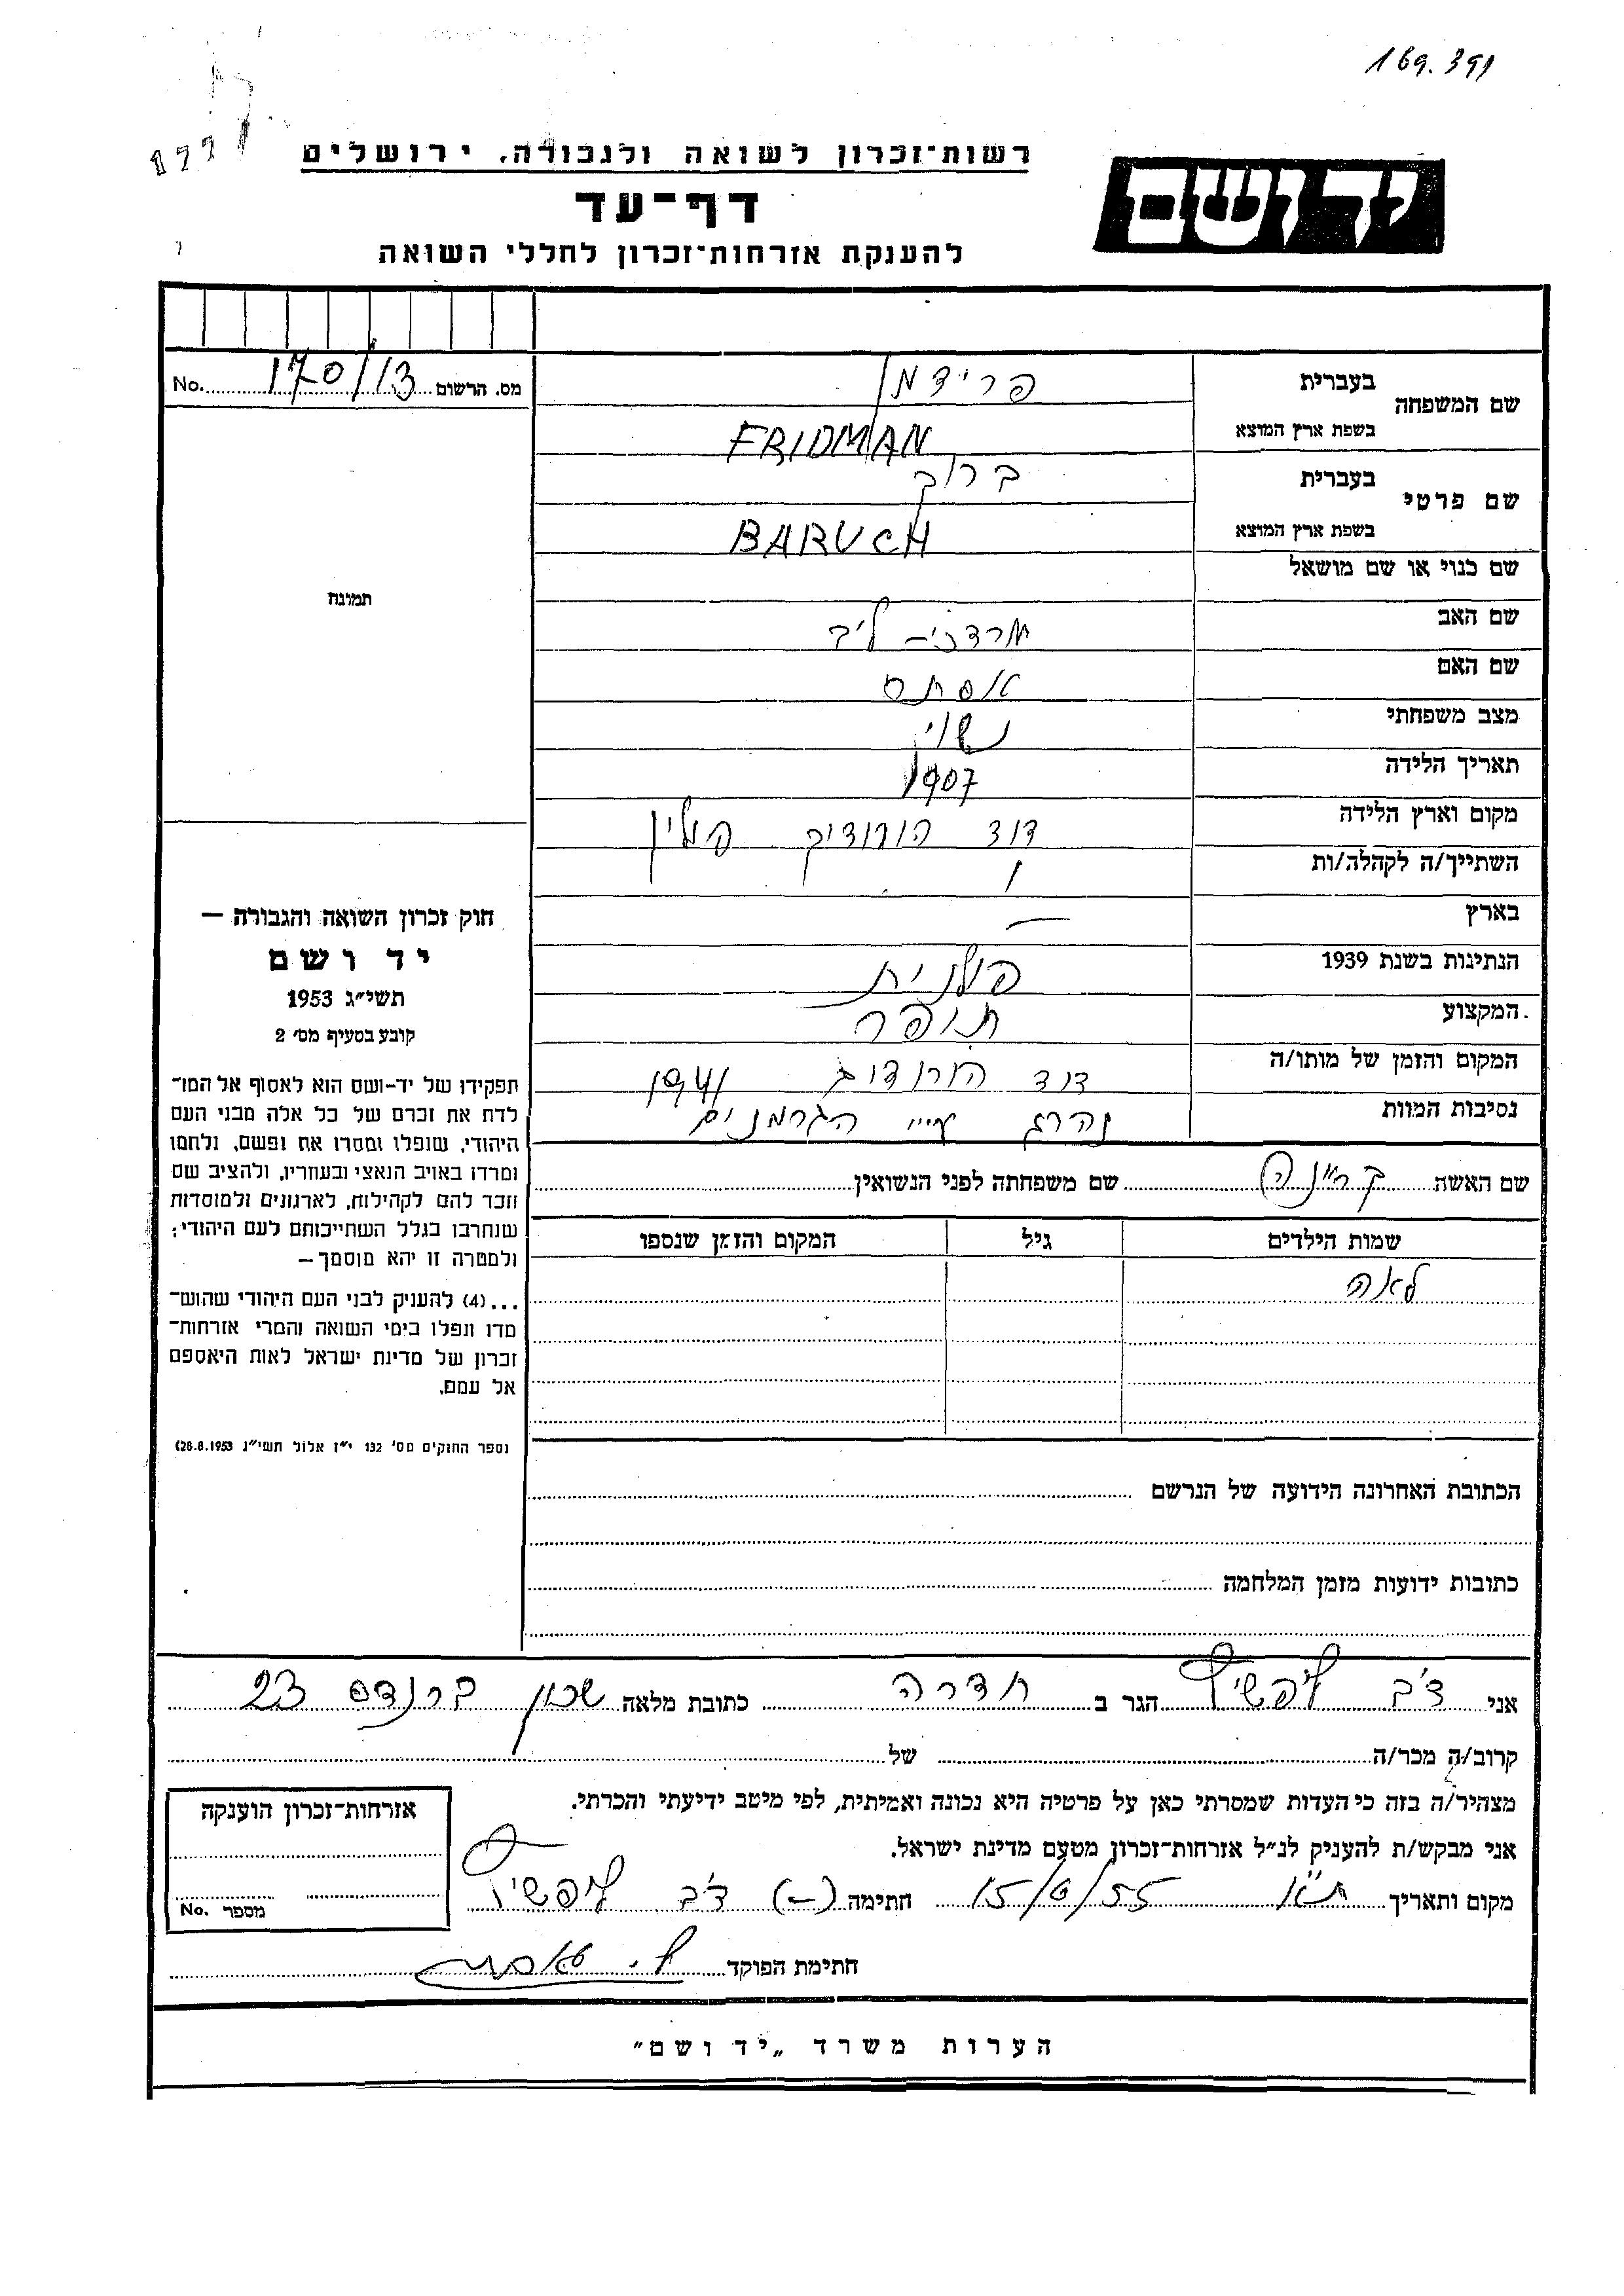 169.391
177
רשות־זכרון לשואה ולגבורה, ירושלים
יד ושם
דף־עד
להענקת אזרחות־זכרון לחללי השואה
מס. הרשום 170/13 No.
שם המשפחה בעברית פרידמן
בשפת ארץ המוצא FRIDMAN
שם פרטי בעברית ברוך
בשפת ארץ המוצא BARUCH
שם כנוי או שם מושאל
שם האב מרדכי - ליב
שם האם אסתר
מצב משפחתי נשוי
תאריך הלידה 1907
מקום וארץ הלידה דוד הורודוק פולין
השתייך/ה לקהלה/ות
בארץ —
הנתינות בשנת 1939 פולנית
המקצוע תופר
המקום והזמן של מותו/ה דוד הורודוק 1941
נסיבות המוות נהרג ע״י הגרמנים
שם האשה שם משפחתה לפני הנשואין
שמות הילדים גיל המקום והזמן שנספו
לאה
הכתובת האחרונה הידועה של הנרשם
כתובות ידועות מזמן המלחמה
תמונה
חוק זכרון השואה והגבורה —
יד ושם
תשי״ג 1953
קובע בסעיף מס׳ 2
תפקידו של יד-ושם הוא לאסוף אל המו־
לדת את זכרם של כל אלה מבני העם
היהודי, שנפלו ומסרו את נפשם, נלחמו
ומרדו באויב הנאצי ובעוזריו, ולהציב שם
וזכר להם לקהילות, לארגונים ולמוסדות
שנחרבו בגלל השתייכותם לעם היהודי;
ולמטרה זו יהא מוסמך—
...(4) להעניק לבני העם היהודי שהוש־
מדו ונפלו בימי השואה והמרי אזרחות־
זכרון של מדינת ישראל לאות היאספם
אל עמם.
(ספר החוקים מס׳ 132 י״ז אלול תשי״ג 28.8.1953)
אני דב ליפשיץ הגר ב חדרה כתובת מלאה שכון ברנדס 23
קרוב/ה מכר/ה של
מצהיר/ה בזה כי העדות שמסרתי כאן על פרטיה היא נכונה ואמיתית, לפי מיטב ידיעתי והכרתי.
אני מבקש/ת להעניק לנ״ל אזרחות־זכרון מטעם מדינת ישראל.
מקום ותאריך ת״א 15/6/55 חתימה (—) דב ליפשיץ
חתימת הפוקד
אזרחות־זכרון הוענקה
מספר No.
הערות משרד „יד ושם״